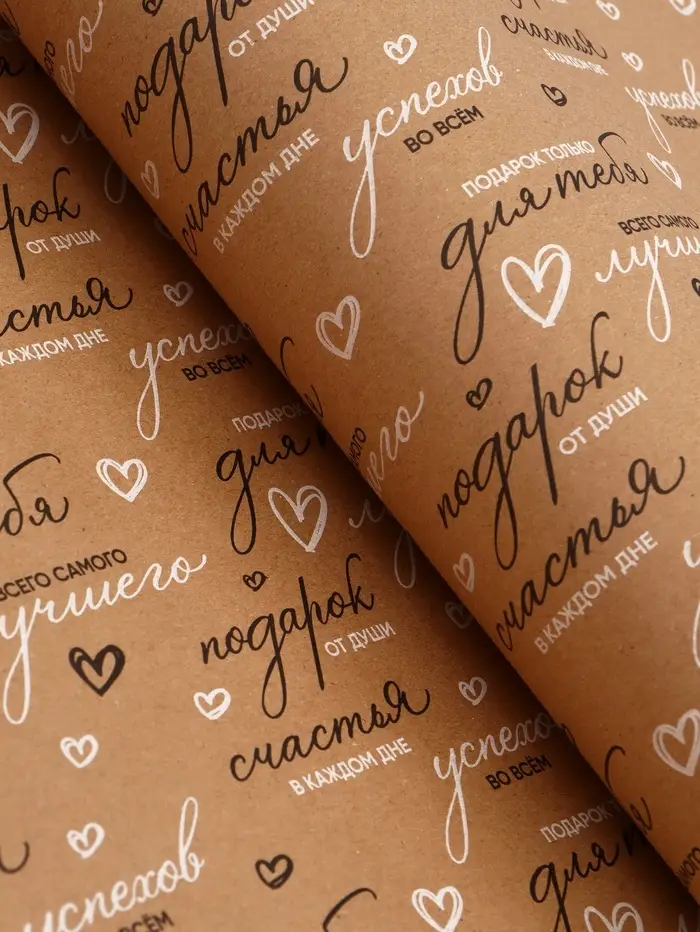 подарок
ОТ ДУШИ
счастья
В КАЖДОМ ДНЕ
счастья
В КАЖДОМ ДНЕ
успехов
ВО ВСЁМ
успехов
ВО ВСЁМ
ПОДАРОК ТОЛЬКО
для тебя
ВСЕГО САМОГО
лучш
рок
ОТ ДУШИ
стья
КАЖДОМ ДНЕ
успехо
ВО ВСЁМ
подарок
ОТ ДУШИ
ПОДАРОК
для
счастья
В КАЖДОМ ДНЕ
бя
ВСЕГО САМОГО
учшего
подарок
ОТ ДУШИ
счастья
В КАЖДОМ ДНЕ
успехо
ВО ВСЁМ
ПОДАРОК Т
для
успехов
ВСЁМ